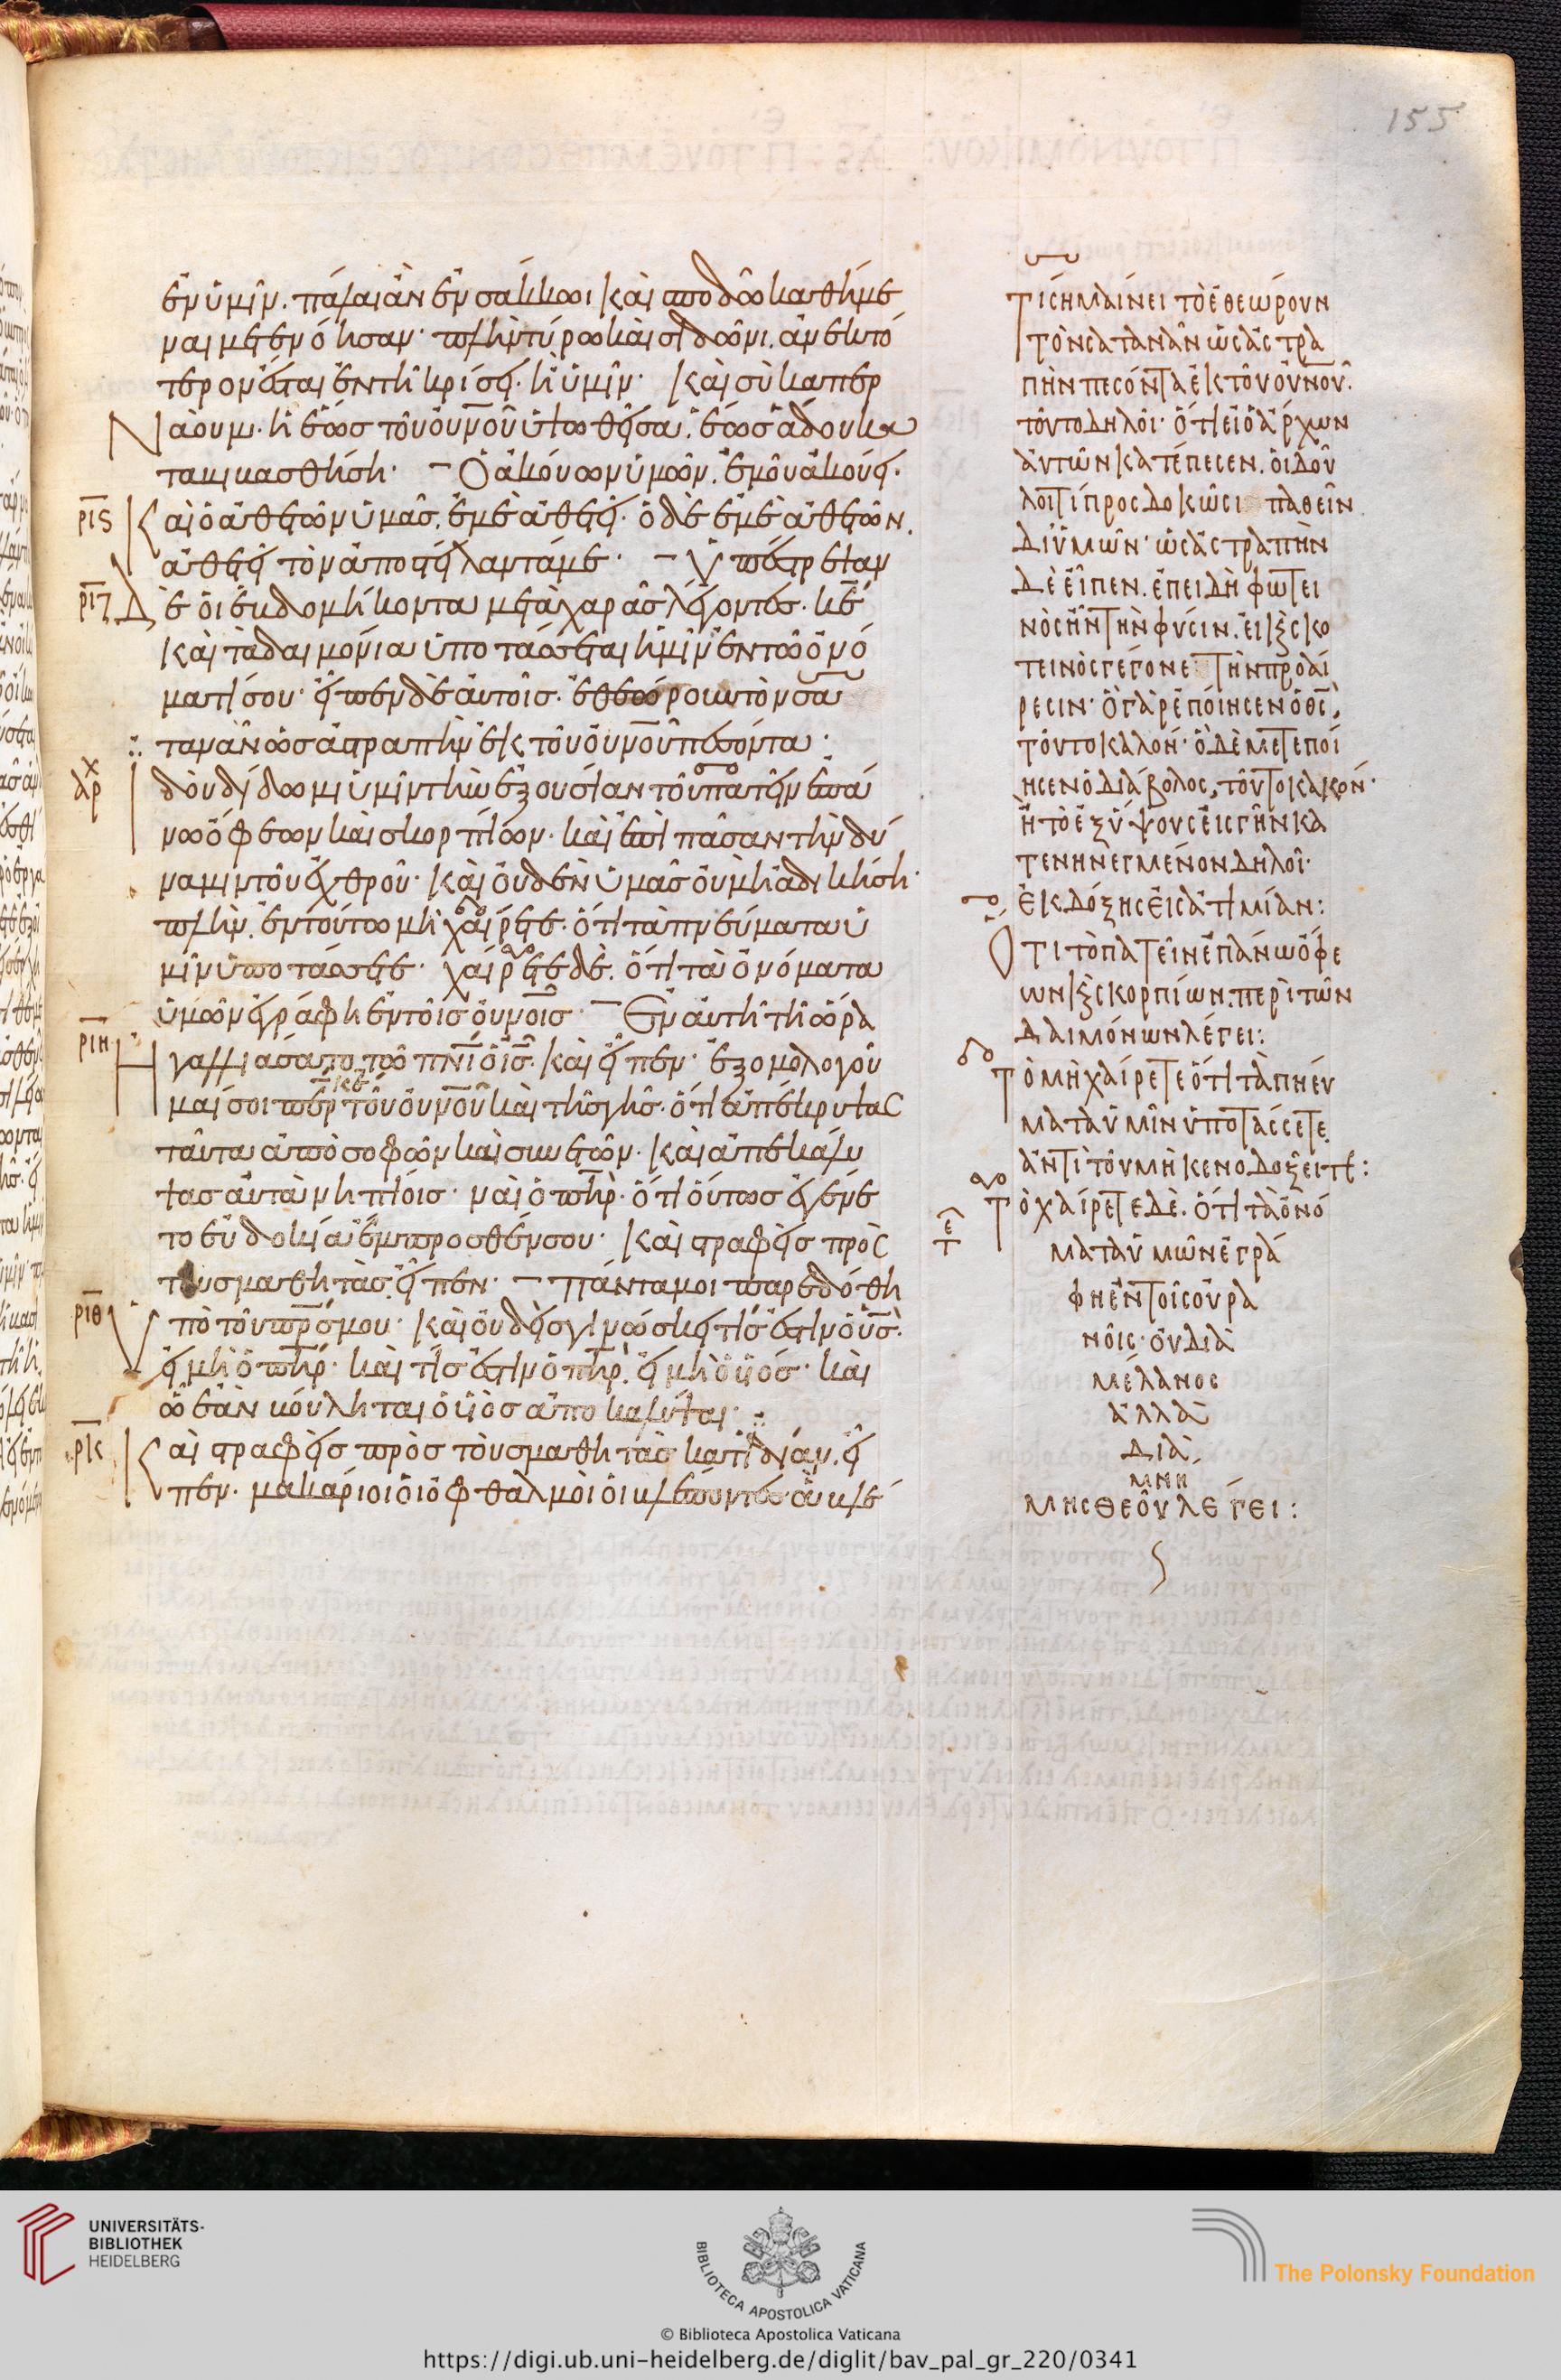 155
ἐν ὑμῖν. πάλαι ἂν ἐν σάκκωι καὶ σποδῶ καθήμε
ναι μετενόησαν· πλὴν τύρω καὶ σιδῶνι. ἀνεκτό
τερον ἔσται ἐν τῆ κρίσει. ἢ ὑμῖν· καὶ σὺ καπερ
Ναοὺμ. ἡ ἕως τοῦ οὐνοῦ ὑψωθεῖσα. ἕως ἅδου κα
ταβιβασθήση· – Ὁ ἀκούων ὑμῶν. ἐμοῦ ἀκούει.
ρις Καὶ ὁ ἀθετῶν ὑμᾶς. ἐμὲ ἀθετεῖ· ὁ δὲ ἐμὲ ἀθετῶν.
ἀθετεῖ τὸν ἀποστείλαντά με· – Ὑπέστρεψαν
ριζ Δὲ οἱ ἑβδομήκοντα μετὰ χαρᾶς λέγοντες. κε
καὶ τὰ δαιμόνια ὑποτάσσεται ἡμῖν ἐν τῶ ὀνό
ματί σου· εἶπεν δὲ αὐτοῖς. ἐθεώρουν τὸν σα
τανᾶν ὡς ἀστραπὴν ἐκ τοῦ οὐνοῦ πεσόντα·
δοὺ δίδωμι ὑμῖν τὴν ἐξουσίαν τοῦ πατεῖν ἐπά
νω ὄφεων καὶ σκορπίων. καὶ ἐπὶ πᾶσαν τὴν δύ
ναμιν τοῦ ἐχθροῦ· καὶ οὐδὲν ὑμᾶς οὐ μὴ ἀδικήση·
πλὴν. ἐν τούτω μὴ χαίρετε. ὅτι τὰ πνεύματα ὑ
μῖν ὑποτάσσεται· χαίρετε δὲ. ὅτι τὰ ὀνόματα
ὑμῶν ἐγράφη ἐν τοῖς οὐνοις· – Ἐν αὐτῆ τῆ ὥρα
ριη Ἠγαλλιάσατο τῶ πνι ὁ ις. καὶ εἶπεν· ἐξομολογοῦ
μαί σοι περ κε τοῦ οὐνοῦ καὶ τῆς γῆς. ὅτι ἀπέκρυψας
ταῦτα ἀπὸ σοφῶν καὶ συνετῶν. καὶ ἀπεκάλυ
ψας αὐτὰ νηπίοις· ναὶ ὁ πηρ. ὅτι οὕτως ἐγένε
το εὐδοκία ἔμπροσθέν σου· καὶ στραφεὶς πρὸς
τοὺς μαθητὰς. εἶπεν· – Πάντα μοι παρεδόθη
ριθ Ὑπὸ τοῦ πρς μου· καὶ οὐδεὶς γινώσκει τίς ἐστιν ὁ υς.
εἰ μὴ ὁ πηρ. καὶ τίς ἐστιν ὁ πηρ. εἰ μὴ ὁ υἱός. καὶ
ὧ ἐὰν βούληται ὁ υἱὸς ἀποκαλύψαι·
ρκ Καὶ στραφεὶς πρὸς τοὺς μαθητὰς κατ' ἰδίαν. εἶ
πεν. μακάριοι οἱ ὀφθαλμοὶ οἱ βλέποντες ἃ βλέ
Τί σημαίνει τὸ ἐθεώρουν
τὸν σατανᾶν ὡς ἀστρα
πὴν πεσόντα ἐκ τοῦ οὐνοῦ.
τοῦτο δηλοῖ· ὅτι εἰ ὁ ἄρχων
αὐτῶν κατέπεσεν. οἱ δοῦ
λοι τί προσδοκῶσι παθεῖν
δι' ὑμῶν· ὡς ἀστραπὴν
δὲ εἶπεν. ἐπειδὴ φωτει
νὸς ἦν τὴν φύσιν. εἰ καὶ σκο
τεινὸς γέγονε τὴν προαί
ρεσιν· ὃ γὰρ ἐποίησεν ὁ θς,
τοῦτο καλόν· ὃ δὲ μετεποί
ησεν ὁ διάβολος, τοῦτο κακόν·
ἢ τὸ ἐξ ὕψους εἰς γῆν κα
τενηνεγμένον δηλοῖ·
ἐκ δόξης εἰς ἀτιμίαν:
Ὅτι τὸ πατεῖν ἐπάνω ὄφε
ων καὶ σκορπίων. περὶ τῶν
δαιμόνων λέγει:
Τὸ μὴ χαίρετε ὅτι τὰ πνεύ
ματα ὑμῖν ὑποτάσσεται
ἀντὶ τοῦ μὴ κενοδοξεῖτε:
Τὸ χαίρετε δὲ. ὅτι τὰ ὀνό
ματα ὑμῶν ἐγρά
φη ἐν τοῖς οὐρα
νοῖς· οὐ διὰ
μέλανος
ἀλλὰ
διὰ
μνή
μης θεοῦ λέγει:
UNIVERSITÄTS-
BIBLIOTHEK
HEIDELBERG
BIBLIOTECA APOSTOLICA VATICANA
The Polonsky Foundation
© Biblioteca Apostolica Vaticana
https://digi.ub.uni-heidelberg.de/diglit/bav_pal_gr_220/0341